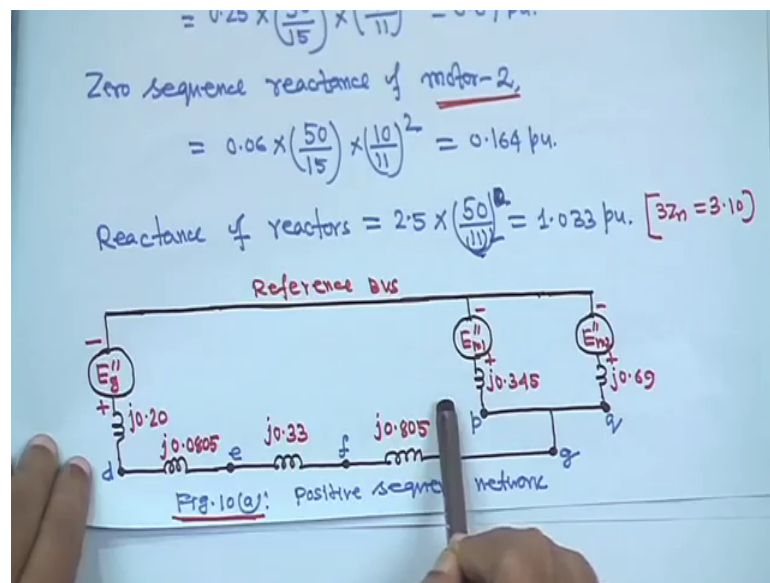 = 0.25 × (50/15) × (10/11)² = 0.69 pu.
Zero sequence reactance of motor-2,
= 0.06 × (50/15) × (10/11)² = 0.164 pu.
Reactance of reactors = 2.5 × (50/(11)²) = 1.033 pu. [3Zn = 3.10]
Reference Bus
− − −
Eg'' Em1'' Em2''
+ + +
j0.20 j0.345 j0.69
j0.0805 j0.33 j0.805 p q
d e f g
Fig.10(a): Positive sequence network